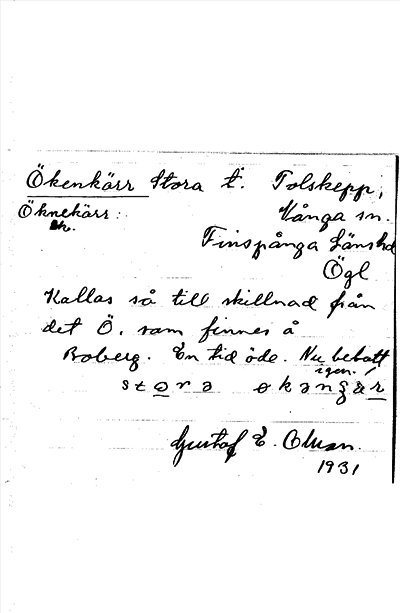 Ökenkärr Stora t. Tolskepp,
Öknekärr: Vånga sn.
Finspånga Länshd
Ögl
Kallas så till skillnad från
det Ö. som finnes å
Boberg. En tid öde. Nu bebott
igen!
Gustaf E. Oman.
1931